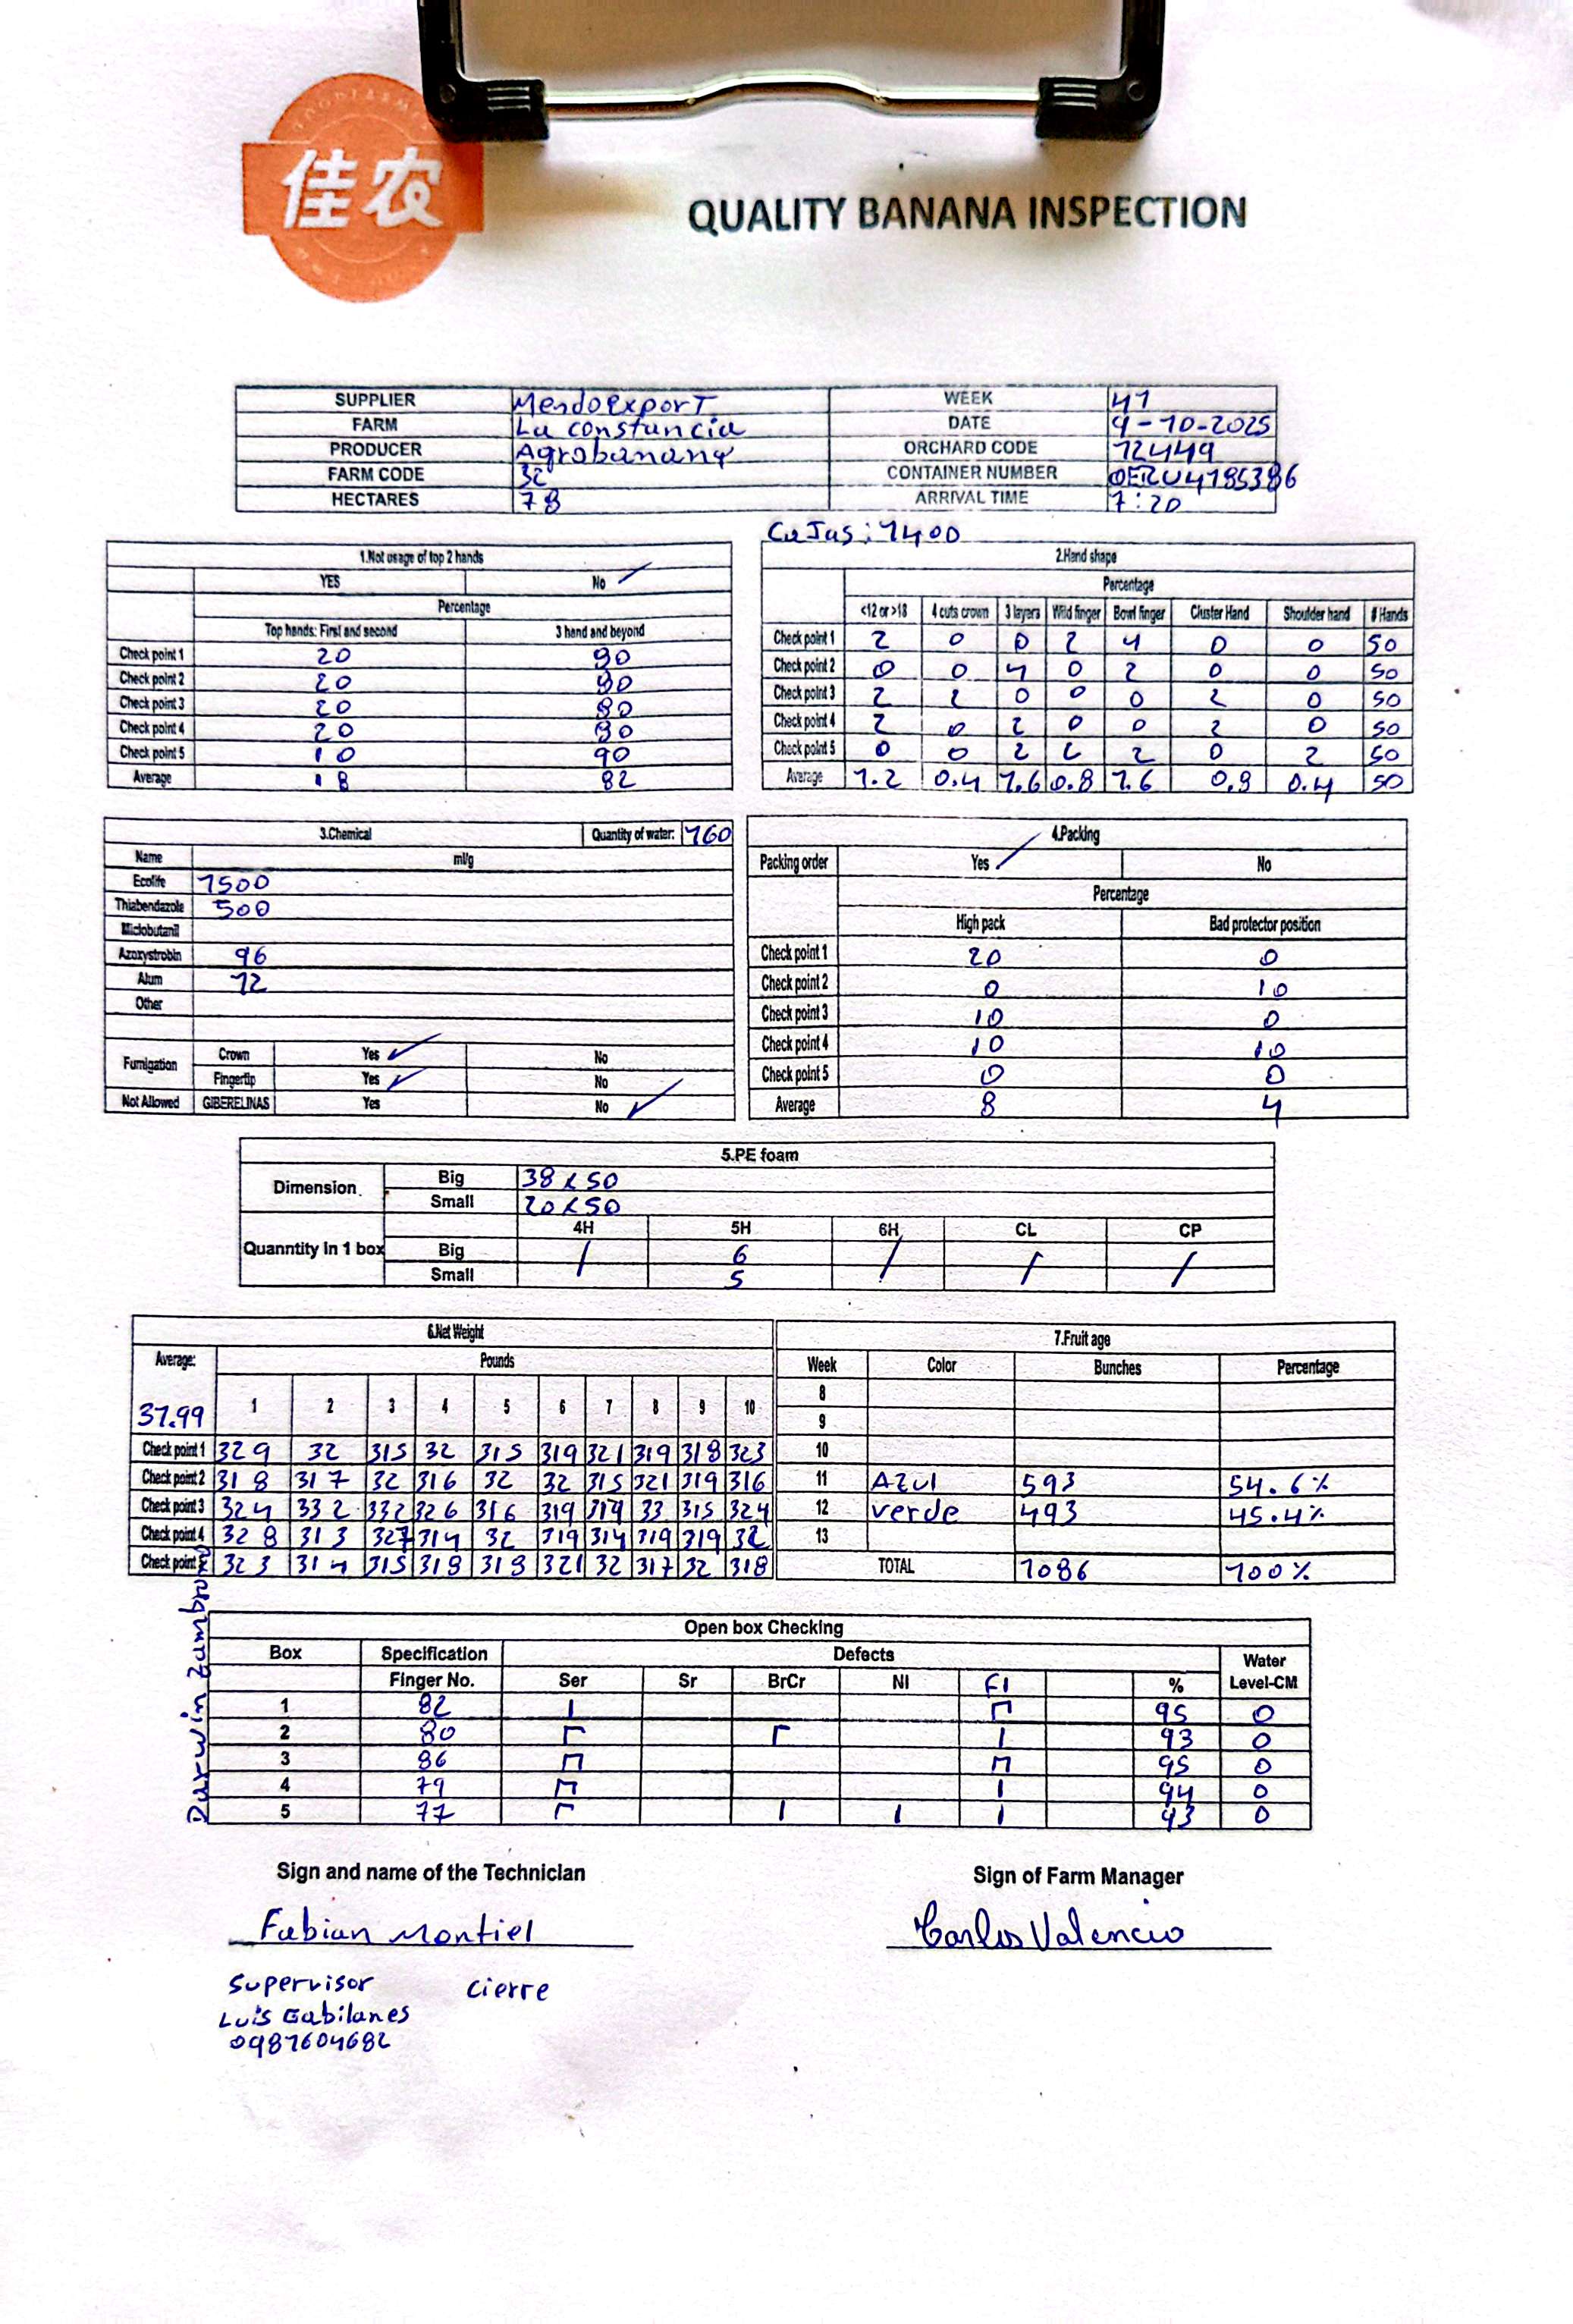 佳农
QUALITY BANANA INSPECTION
SUPPLIER MendoexporT WEEK 41
FARM La constancia DATE 9-10-2025
PRODUCER Agrobanana ORCHARD CODE 12449
FARM CODE 32 CONTAINER NUMBER OERU4185386
HECTARES 78 ARRIVAL TIME 7:20
CaJas: 1400
1.Not usage of top 2 hands
YES No ✓
Percentage
Top hands: First and second 3 hand and beyond
Check point 1 20 80
Check point 2 20 80
Check point 3 20 80
Check point 4 20 80
Check point 5 10 90
Average 18 82
2.Hand shape
Percentage
<12 or >18 4 cuts crown 3 layers Wild finger Bowl finger Cluster Hand Shoulder hand # Hands
Check point 1 2 0 0 2 4 0 0 50
Check point 2 0 0 4 0 2 0 0 50
Check point 3 2 2 0 0 0 2 0 50
Check point 4 2 0 2 0 0 2 0 50
Check point 5 0 0 2 2 2 0 2 50
Average 1.2 0.4 1.6 0.8 1.6 0.8 0.4 50
3.Chemical Quantity of water: 160
Name ml/g
Ecolife 1500
Thiabendazole 500
Miclobutanil
Azoxystrobin 96
Alum 12
Other
Fumigation Crown Yes ✓ No
Fingertip Yes ✓ No
Not Allowed GIBERELINAS Yes No ✓
4.Packing
Packing order Yes ✓ No
Percentage
High pack Bad protector position
Check point 1 20 0
Check point 2 0 10
Check point 3 10 0
Check point 4 10 10
Check point 5 0 0
Average 8 4
5.PE foam
Dimension Big 38x50
Small 20x50
4H 5H 6H CL CP
Quanntity in 1 box Big / 6 / / /
Small 5
6.Net Weight
Average: Pounds
31.99 1 2 3 4 5 6 7 8 9 10
Check point 1 329 32 315 32 315 319 321 319 318 323
Check point 2 318 317 32 316 32 32 315 321 319 316
Check point 3 324 332 332 326 316 319 314 33 315 324
Check point 4 328 313 327 314 32 319 314 319 319 32
Check point 323 314 315 318 318 321 32 317 32 318
7.Fruit age
Week Color Bunches Percentage
8
9
10
11 Azul 593 54.6%
12 verde 493 45.4%
13
TOTAL 1086 100%
Darwin Zambrano
Open box Checking
Box Specification Defects Water
Finger No. Ser Sr BrCr NI FI % Level-CM
1 82 95 0
2 80 93 0
3 86 95 0
4 79 94 0
5 77 93 0
Sign and name of the Technician Sign of Farm Manager
Fabian Montiel Carlos Valencia
Supervisor cierre
Luis Gabilanes
0987604682